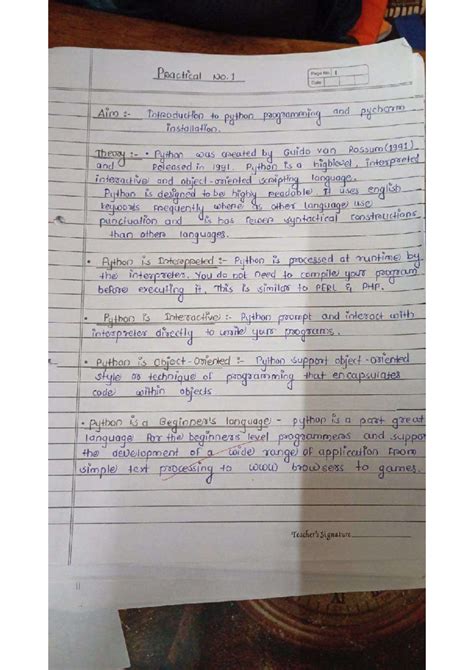 Practical No. 1
Page No. 1
Date
Aim :- Introduction to python programming and pycharm
installation.
Theory :- • Python was created by Guido van Rossum (1991)
and Released in 1991. Python is a highlevel, interpreted
interactive and object-oriented scripting language.
Python is designed to be highly readable. It uses english
keywords frequently where as other language use
punctuation and is has fewer syntactical constructions
than other languages.
• Python is Interepreted :- Python is processed at runtime by
the interpreter. You do not need to compile your program
before executing it. This is similar to PERL & PHP.
• Python is Interactive :- Python prompt and interact with
interpreter directly to write your programs.
• Python is Object-Oriented :- Python support object-oriented
style or technique of programming that encapsulates
code within objects
• Python is a Beginner's language - python is a part great
language for the beginners level programmers and suppor
the development of a wide range of application from
simple text processing to www browsers to games.
Teacher's Signature